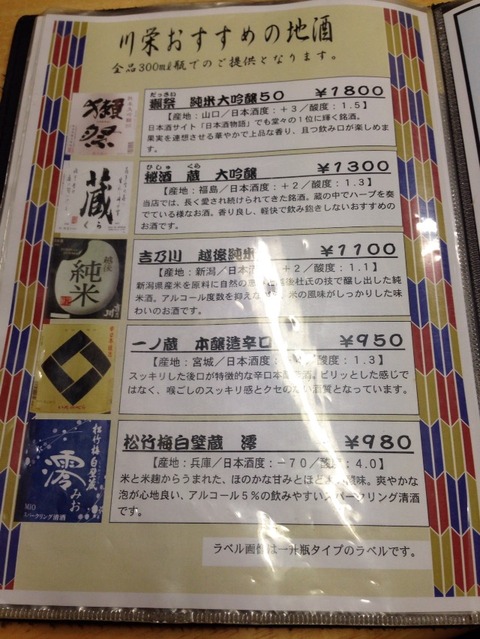 川栄おすすめの地酒
全品300mℓ瓶でのご提供となります。
獺祭
だっさい
獺祭 純米大吟醸50 ¥1800
【産地:山口/日本酒度:+3/酸度:1.5】
日本酒サイト「日本酒物語」でも堂々の1位に輝く銘酒。
果実を連想させる華やかで上品な香り、且つ飲み口が楽しめます。
蔵
ひしゅ くら
秘酒 蔵 大吟醸 ¥1300
【産地:福島/日本酒度:+2/酸度:1.3】
当店では、長く愛され続けられてきた銘酒。蔵の中でハーブを奏
でている様なお酒。香り良し、軽快で飲み飽きしないおすすめ
のお酒です。
越後
純米
吉乃川 越後純米 ¥1100
【産地:新潟/日本酒 +2/酸度:1.1】
新潟県産米を原料に自然の 越後杜氏の技で醸し出した純
米酒。アルコール度数を抑えな 米の風味がしっかりした味
わいのお酒です。
一ノ蔵 本醸造辛口 ¥950
【産地:宮城/日本酒度: /酸度:1.3】
スッキリした後口が特徴的な辛口本 酒。ピリッとした感じで
はなく、喉ごしのスッキリ感とクセの い酒質となっています。
松竹梅白壁蔵
澪
みお
MIO
スパークリング清酒
松竹梅白壁蔵 澪 ¥980
【産地:兵庫/日本酒度:-70/酸度:4.0】
米と米麹からうまれた、ほのかな甘みとほど 酸味。爽やかな
泡が心地良い、アルコール5%の飲みやすい スパークリング清酒
です。
ラベル画像は一升瓶タイプのラベルです。